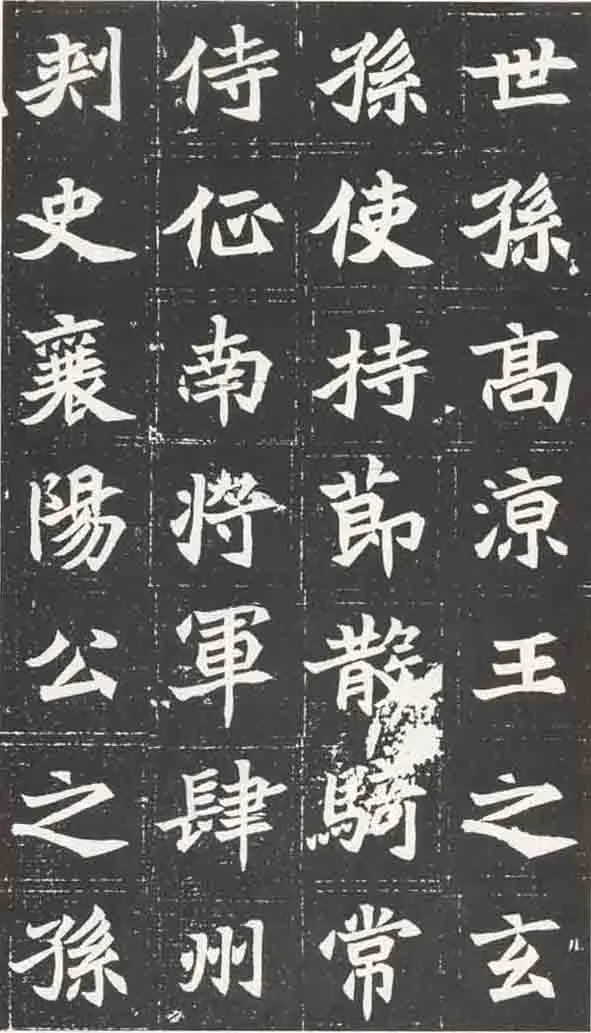 世孫高涼王之玄
孫使持節散騎常
侍征南將軍肆州
刾史襄陽公之孫